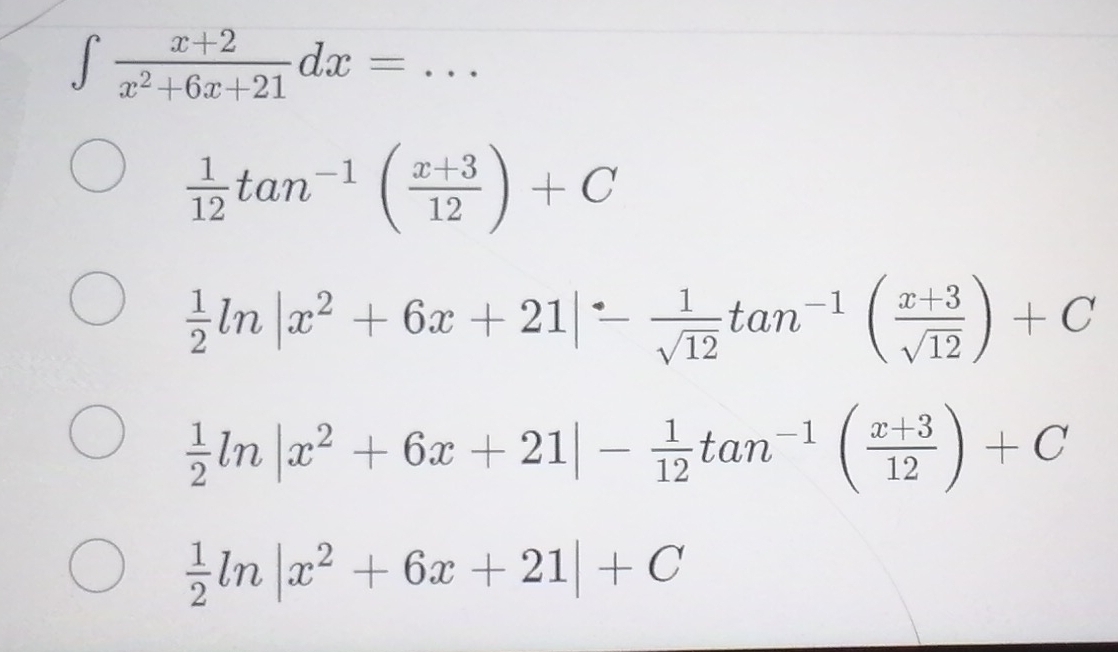 ∫ \frac{x+2}{x^2+6x+21} dx = ...
\frac{1}{12} tan^{-1} \left( \frac{x+3}{12} \right) + C
\frac{1}{2} ln |x^2 + 6x + 21| - \frac{1}{\sqrt{12}} tan^{-1} \left( \frac{x+3}{\sqrt{12}} \right) + C
\frac{1}{2} ln |x^2 + 6x + 21| - \frac{1}{12} tan^{-1} \left( \frac{x+3}{12} \right) + C
\frac{1}{2} ln |x^2 + 6x + 21| + C